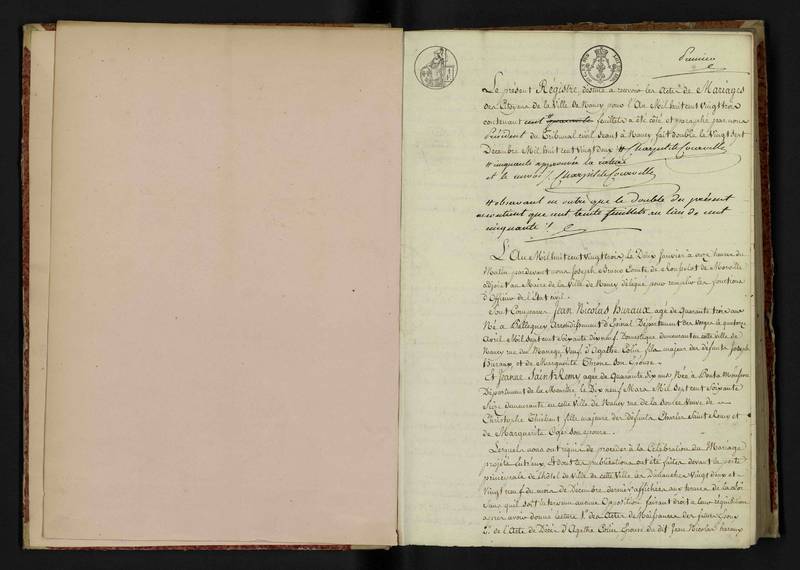 Premier
Le présent Régistre, destiné à recevoir les Actes de Mariages
des Citoyens de la Ville de Nancy pour l'An Mil huit cent vingt trois
contenant cent quarante feuillets a été coté et paraphé par nous
Président du Tribunal civil séant à Nancy, fait double le Vingt sept
Décembre Mil huit cent vingt deux
cinquante approuvée la rature
et le renvoi
observant en outre que le double du présent
ne contient que cent trente feuillets au lieu de cent
cinquante
L'An Mil huit cent Vingt trois, le Deux Janvier à onze heures du
Matin pardevant nous Joseph Comte de
adjoint au Maire de la Ville de Nancy délégué pour remplir les fonctions
d'Officier de l'État civil.
Sont Comparus Jean Nicolas Huraux agé de Quarante trois ans
Né à Arrondissement d'Épinal Département des Vosges le quatorze
Avril Mil Sept cent Soixante dix neuf, Domestique demeurant en cette Ville de
Nancy rue du Manege, Veuf d'Agathe Colin fils majeur des défunts Joseph
Huraux et de Marguerite son Épouse.
Et Jeanne Saint Remy agée de Quarante Six ans Née à Pont à Mousson
Département de la Meurthe, le Dix neuf Mars Mil Sept cent Soixante
Seize demeurante en cette Ville de Nancy rue de la Veuve de
Christophe fille majeure des Défunts Charles Saint Remy et
de Marguerite son épouse.
Lesquels nous ont requis de procéder à la Célébration du Mariage
projeté entr'eux, et dont les publications ont été faites devant la porte
principale de l'hôtel de Ville de cette Ville les Dimanches Vingt deux et
Vingt neuf du mois de Décembre dernier affichées aux termes de la Loi
Sans qu'il soit intervenu aucune Opposition, faisant droit à leur réquisition
après avoir donné lecture 1° des Actes de Naissances des futurs Époux
2° de l'Acte de Décès d'Agathe Colin Épouse du dit Jean Nicolas Huraux